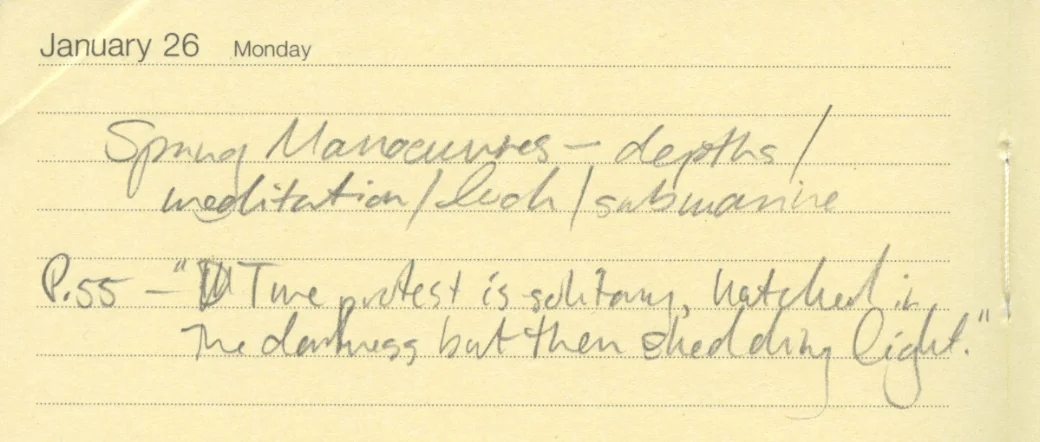 January 26 Monday
Spring Manoeuvres – depths /
meditation / loch / submarine
P.55 – " True protest is solitary, hatched in
the darkness but then shedding light."